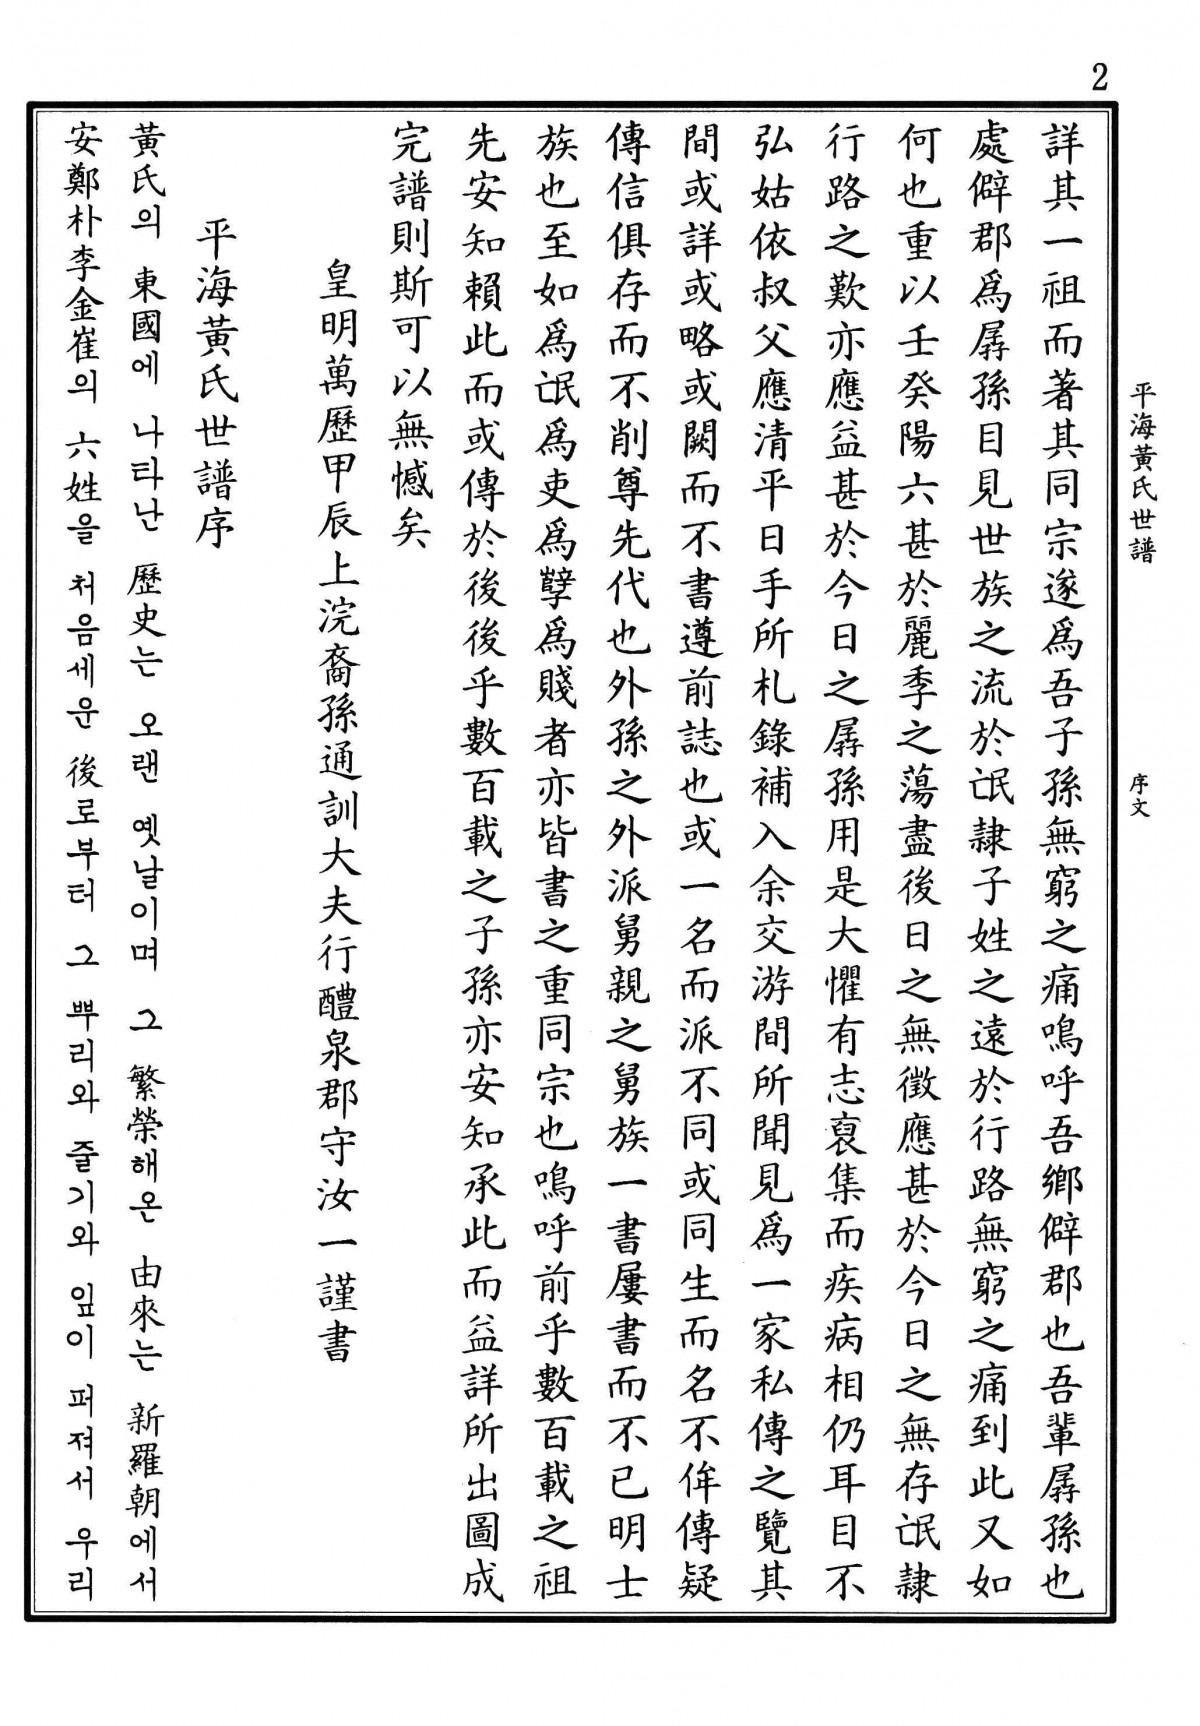 2
平海黃氏世譜
序文
詳其一祖而著其同宗遂爲吾子孫無窮之痛鳴呼吾鄕僻郡也吾輩孱孫也
處僻郡爲孱孫目見世族之流於氓隷子姓之遠於行路無窮之痛到此又如
何也重以壬癸陽六甚於麗季之蕩盡後日之無徵應甚於今日之無存氓隷
行路之歎亦應益甚於今日之孱孫用是大懼有志裒集而疾病相仍耳目不
弘姑依叔父應清平日手所札錄補入余交游間所聞見爲一家私傳之覽其
間或詳或略或闕而不書遵前誌也或一名而派不同或同生而名不侔傳疑
傳信俱存而不削尊先代也外孫之外派舅親之舅族一書屢書而不已明士
族也至如爲氓爲吏爲孼爲賤者亦皆書之重同宗也鳴呼前乎數百載之祖
先安知賴此而或傳於後後乎數百載之子孫亦安知承此而益詳所出圖成
完譜則斯可以無憾矣
皇明萬歷甲辰上浣裔孫通訓大夫行醴泉郡守汝一謹書
平海黃氏世譜序
黃氏의 東國에 나타난 歷史는 오랜 옛날이며 그 繁榮해온 由來는 新羅朝에서
安鄭朴李金崔의 六姓을 처음세운 後로부터 그 뿌리와 줄기와 잎이 퍼져서 우리